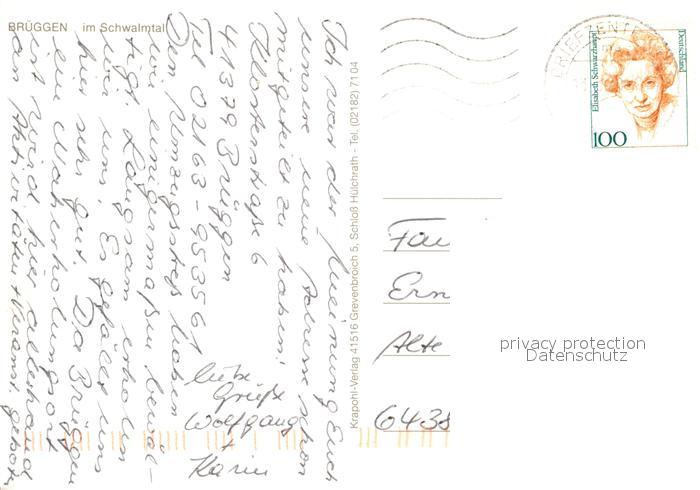 BRÜGGEN im Schwalmtal
Ich war der Meinung Euch
unsere neue Adresse schon
mitgeteilt zu haben:
Klosterstraße 6
41379 Brüggen
Tel 02163-95356
Den Umzugsstreß haben
wir einigermaßen bewäl-
tigt. Langsam erholen
wir uns. Es gefällt uns
hier sehr gut. Da Brüggen
ein Naherholungsort
ist wird hier allerhand
an Aktivitäten + Veranst. geboten
liebe
Grüße
Wolfgang
+
Karin
Krapohl-Verlag 41516 Grevenbroich 5, Schloß Hülchrath - Tel. (02182) 71 04
BRIEFZENT
Elisabeth Schwarzhaupt
Deutschland
100
Fam
Ern
Alte
6438
privacy protection
Datenschutz